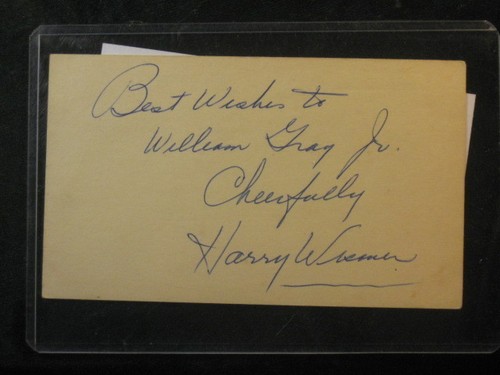 Best Wishes to
William Gray Jr.
Cheerfully
Harry Wismer